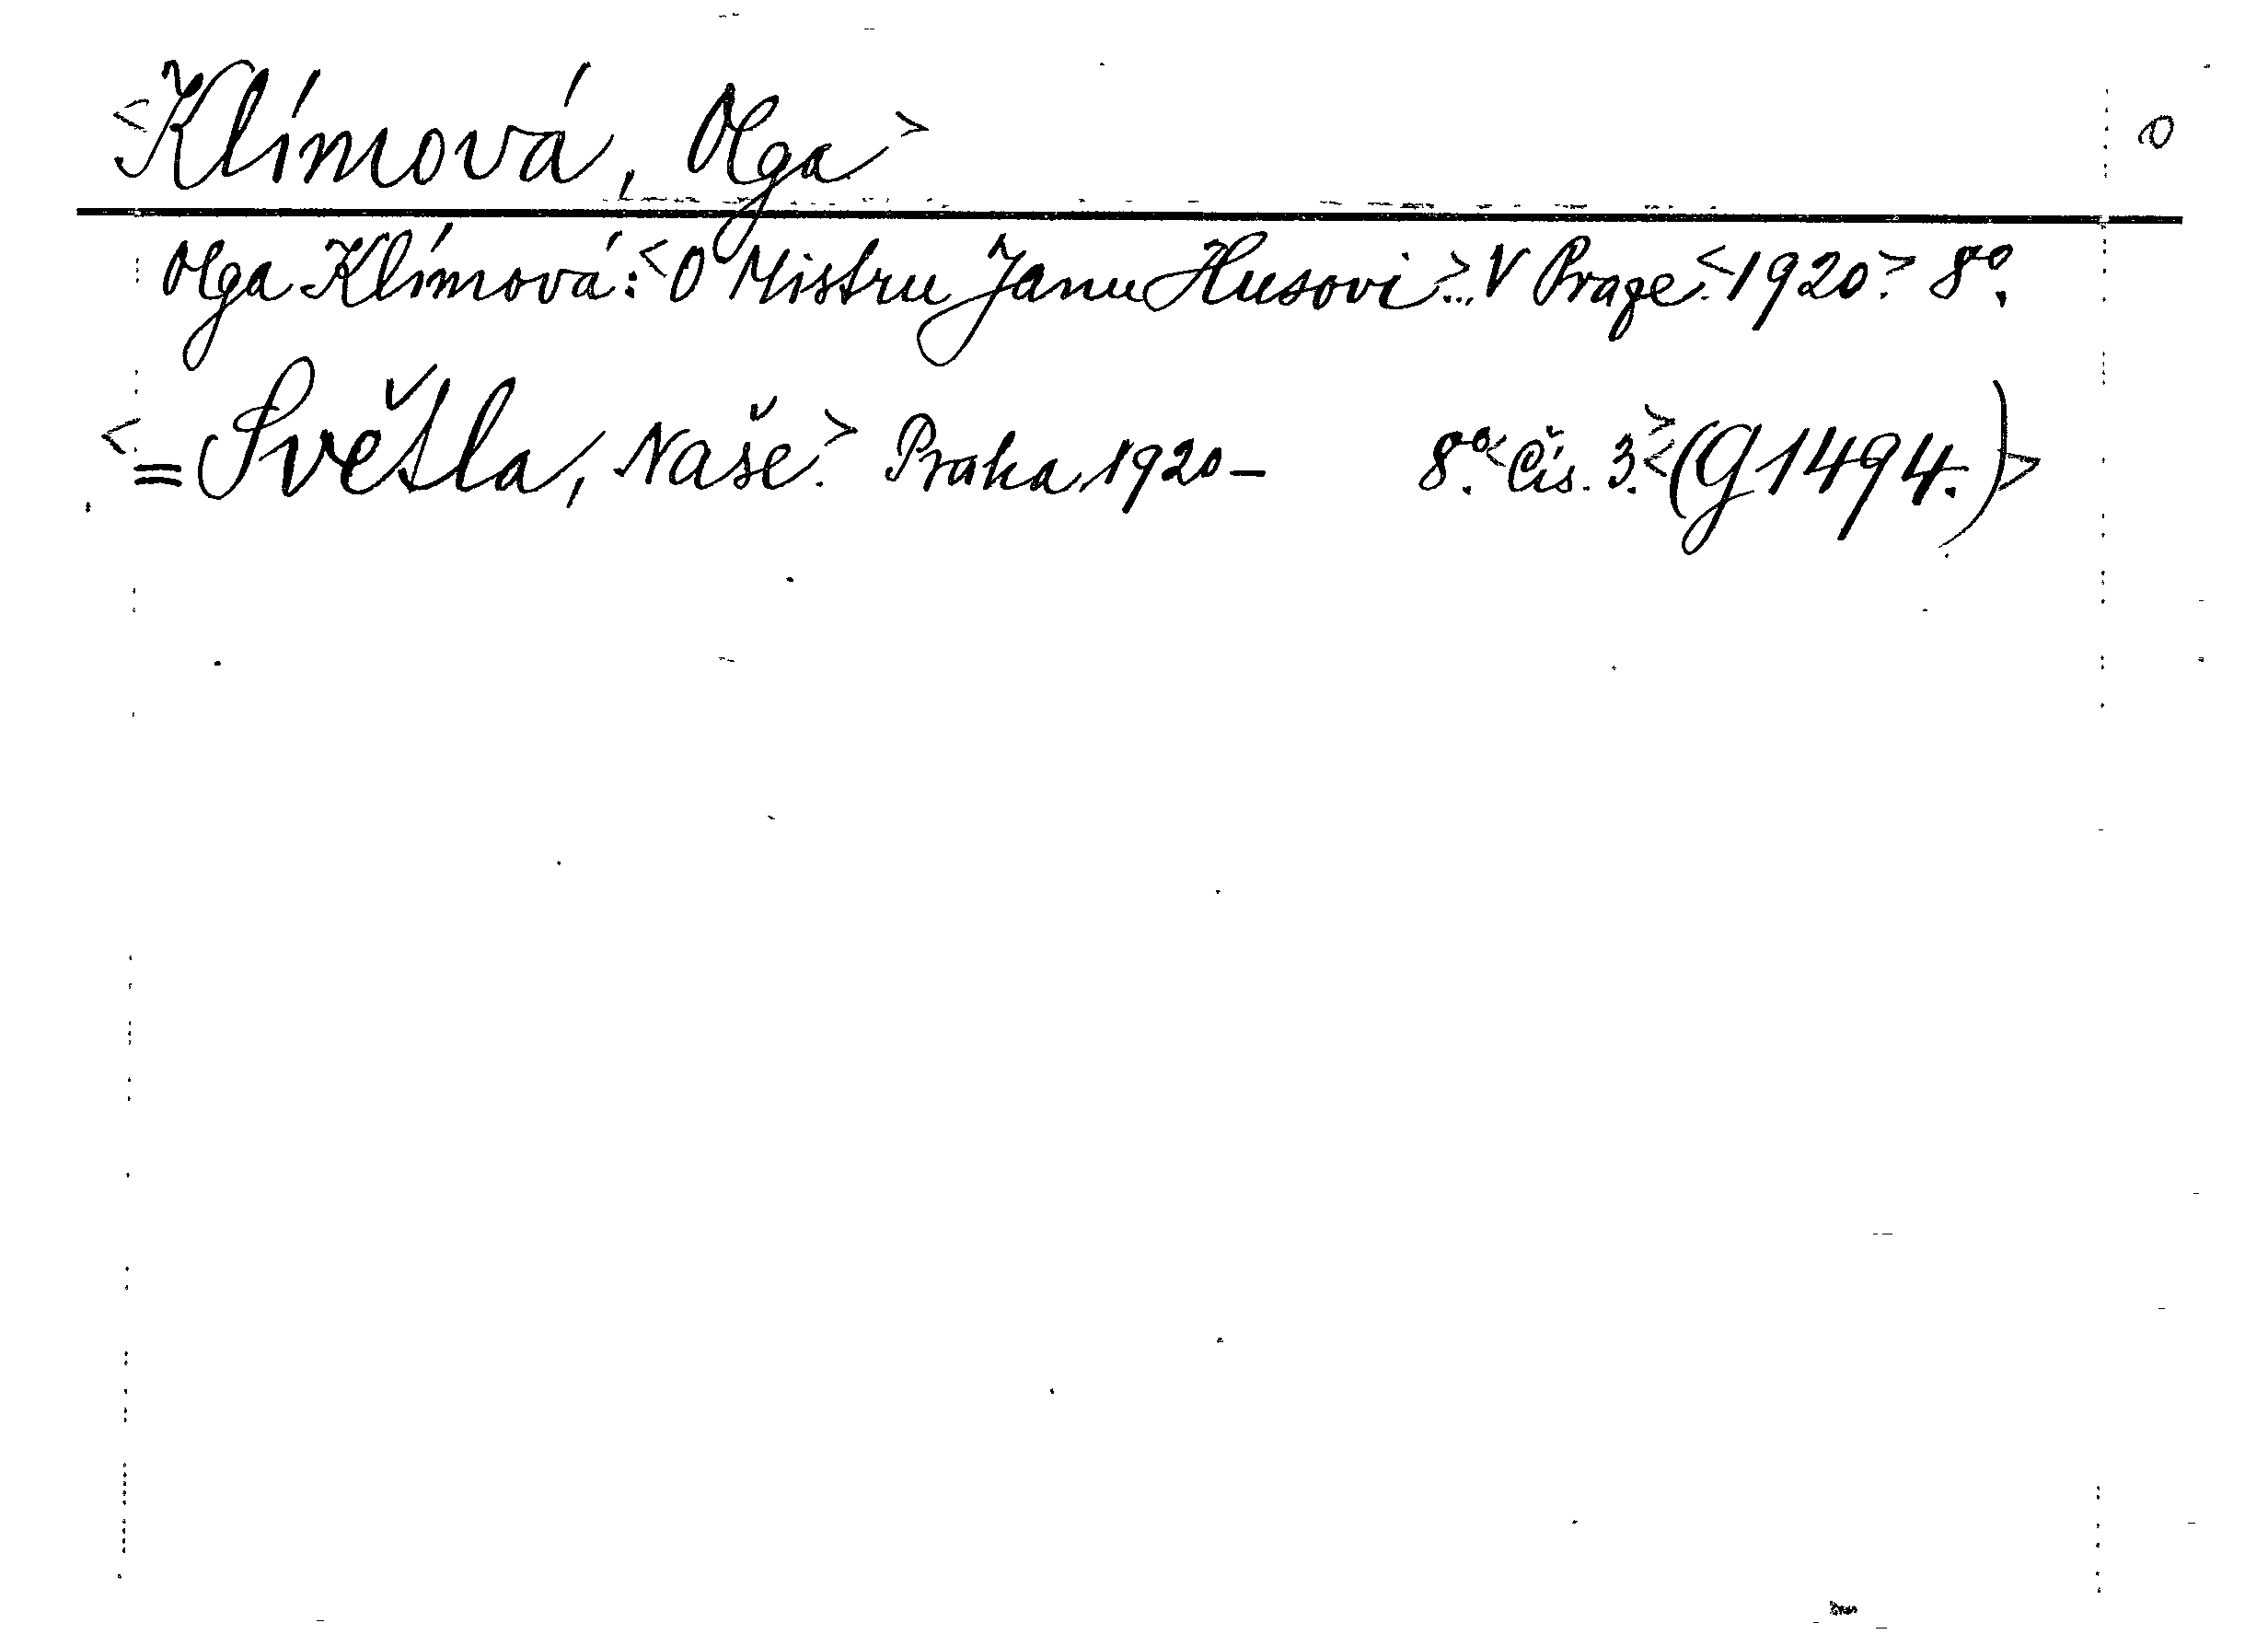 <Klímová, Olga> O
Olga Klímová: <O Mistru Janu Husovi>... V Praze <1920>. 8°.
<= Světla, Naše.> Praha, 1920– 8°. <Čís. 3.> <(G 1494.)>